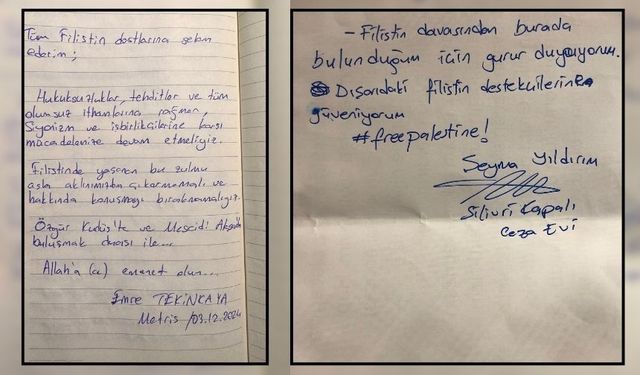 Tüm Filistin dostlarına selam
ederim;
Hukuksuzluklar, tehditler ve tüm
olumsuz ithamlarına rağmen,
Siyonizm ve işbirlikçilerine karşı
mücadelemize devam etmeliyiz.
Filistinde yaşanan bu zulmü
asla aklımızdan çıkarmamalı ve
hakkında konuşmayı bırakmamalıyız.
Özgür Kudüs'te ve Mescid-i Aksa'da
buluşmak duası ile...
Allah'a (a) emanet olun...
Emre TEKİNKAYA
Metris /03.12.2024
- Filistin davasından burada
bulunduğum için gurur duyuyorum.
Dışarıdaki filistin destekçilerine
güveniyorum
#freepalestine!
Şeyma Yıldırım
Silivri Kapalı
Ceza Evi